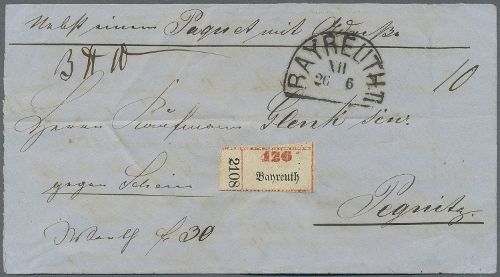 Nebst einem Paquet mit Adreße
3 ℔ 10
BAYREUTH II
VII
26 6
10
Herrn Kaufmann Glenk sen.
126
2108
Bayreuth
gegen Schein
Pegnitz.
Werth f. 30